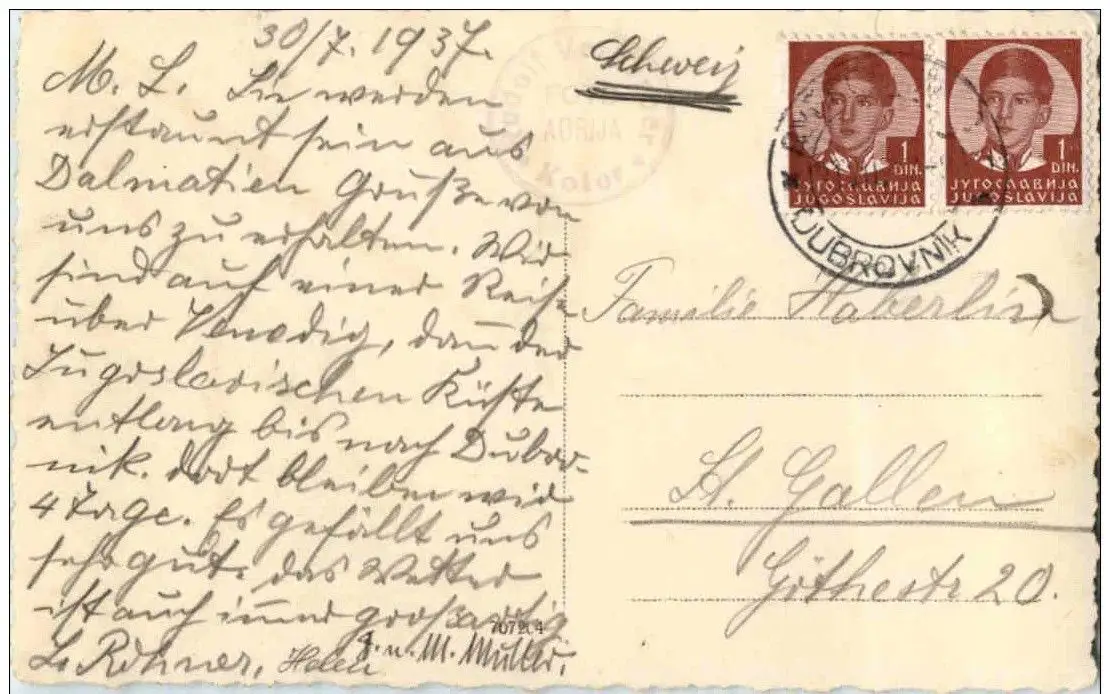 30/7. 1937.
M. L. Sie werden
erstaunt sein aus
Dalmatien Grüße von
uns zu erhalten. Wir
sind auf einer Reise
über Venedig, dann der
Jugoslavischen Küste
entlang bis nach Dubrov-
nik. dort bleiben wir
4 Tage. Es gefällt uns
sehr gut. das Wetter
ist auch immer großartig
Rohner, Helen J. u. M. Müller.
70721.4
FOTO
ADRIJA
Kotor
Schweiz
1 DIN.
ЈУГОСЛАВИЈА
JUGOSLAVIJA
1 DIN.
ЈУГОСЛАВИЈА
JUGOSLAVIJA
DUBROVNIK
Familie Haberlin
St. Gallen
Göthestr 20.